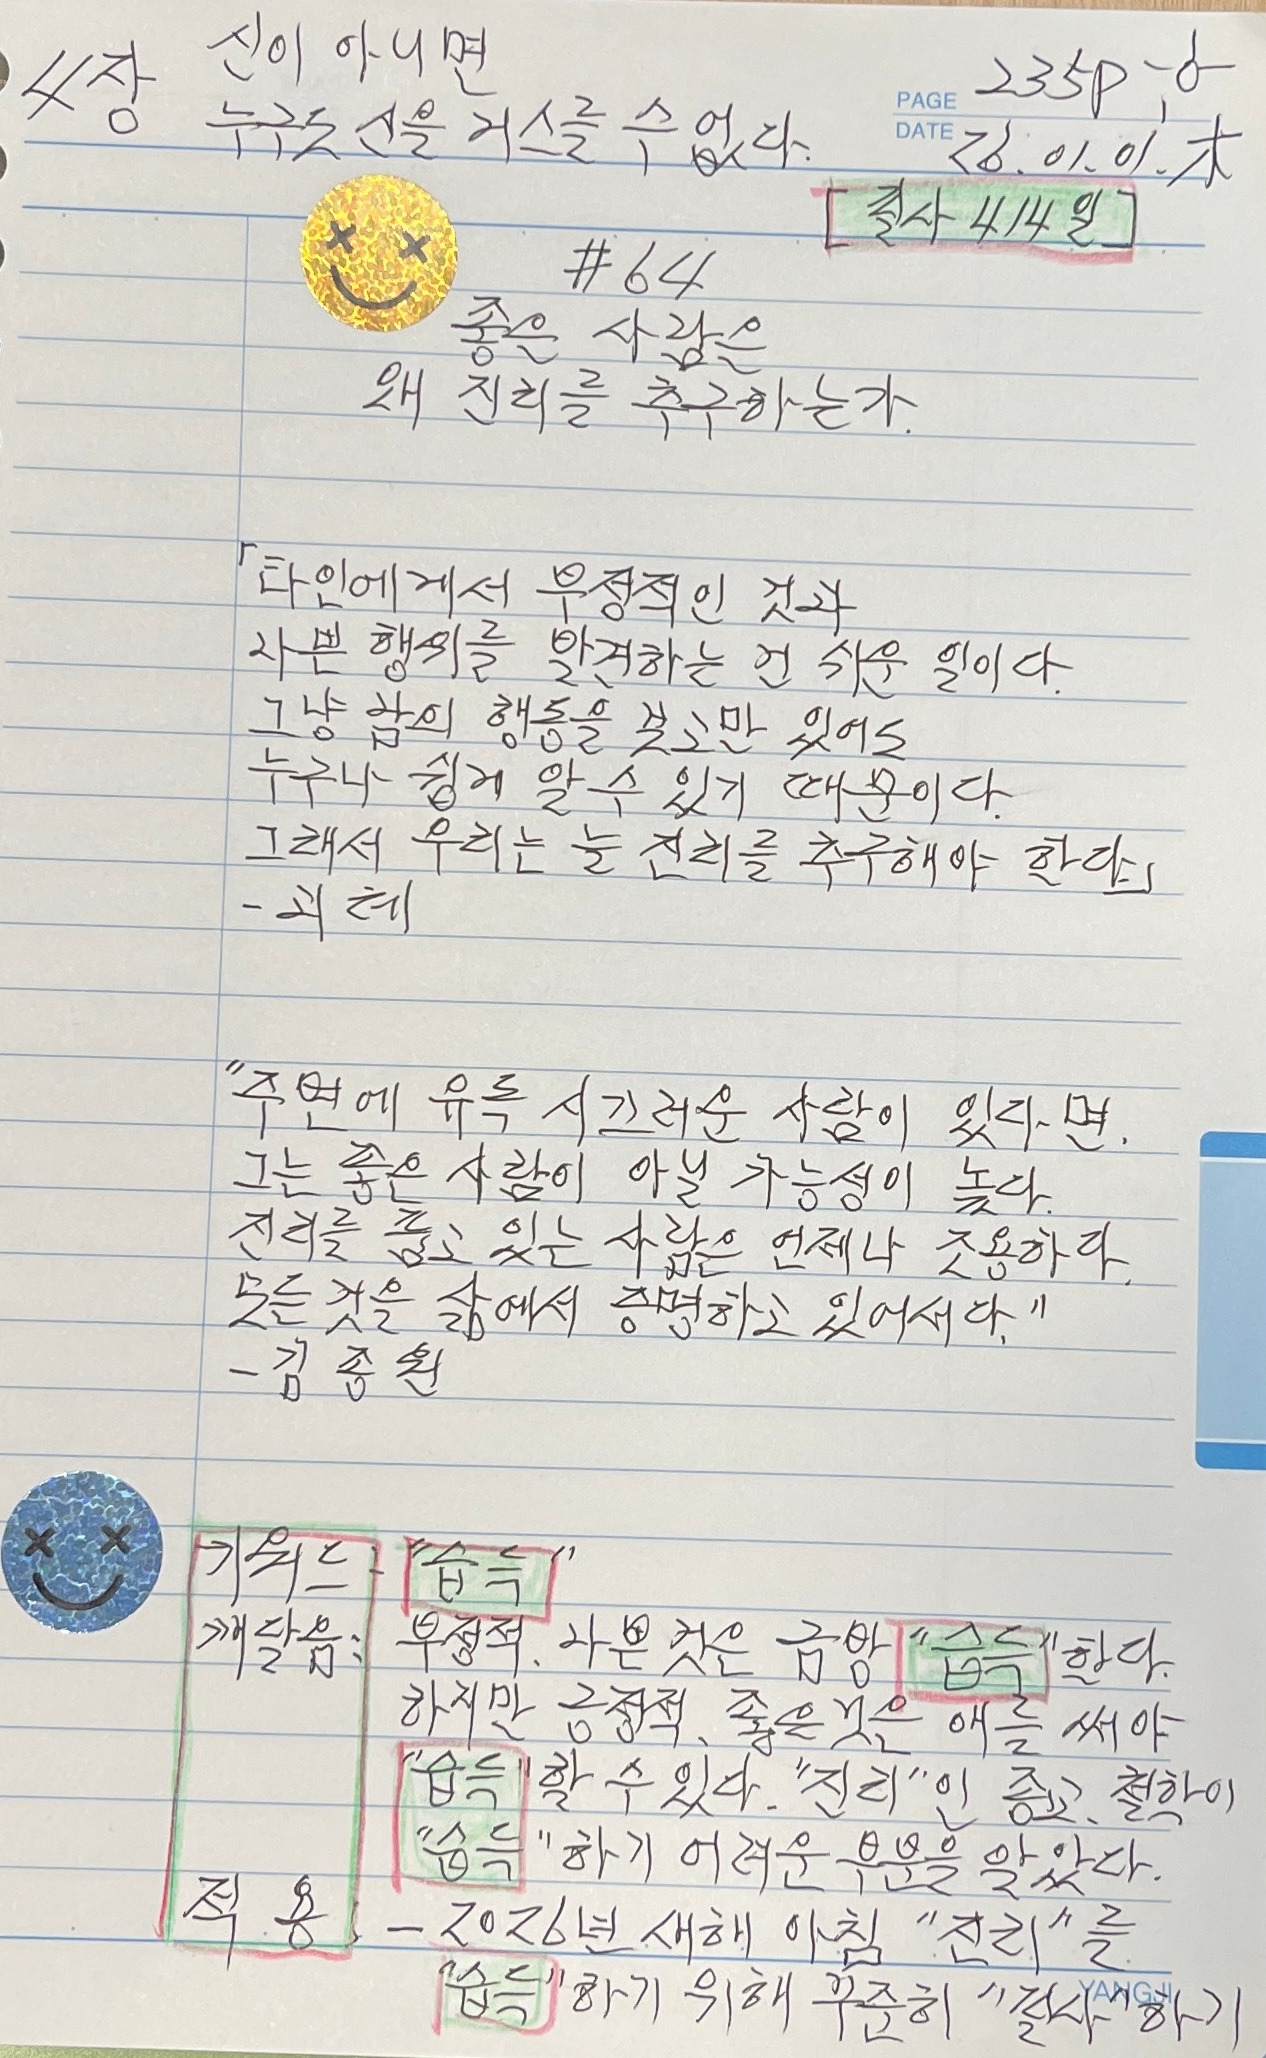 4장 신이 아니면
누구도 신을 거스를 수 없다.
PAGE 235p 中
DATE 26.01.01.木
[필사 414일]
#64
좋은 사람은
왜 진리를 추구하는가.
「타인에게서 부정적인 것과
나쁜 행위를 발견하는 건 쉬운 일이다.
그냥 남의 행동을 보고만 있어도
누구나 쉽게 알 수 있기 때문이다.
그래서 우리는 늘 진리를 추구해야 한다.」
- 괴테
"주변에 유독 시끄러운 사람이 있다면.
그는 좋은 사람이 아닐 가능성이 높다.
진리를 품고 있는 사람은 언제나 조용하다.
모든 것을 삶에서 증명하고 있어서다."
- 김종원
키워드: "습득"
깨달음: 부정적. 나쁜 것은 금방 "습득"한다.
하지만 긍정적. 좋은것은 애를 써야
"습득"할 수 있다. "진리"인 종교. 철학이
"습득"하기 어려운 부분을 알았다.
적용: - 2026년 새해 아침 "진리"를
"습득"하기 위해 꾸준히 "필사"하기
YANGJI